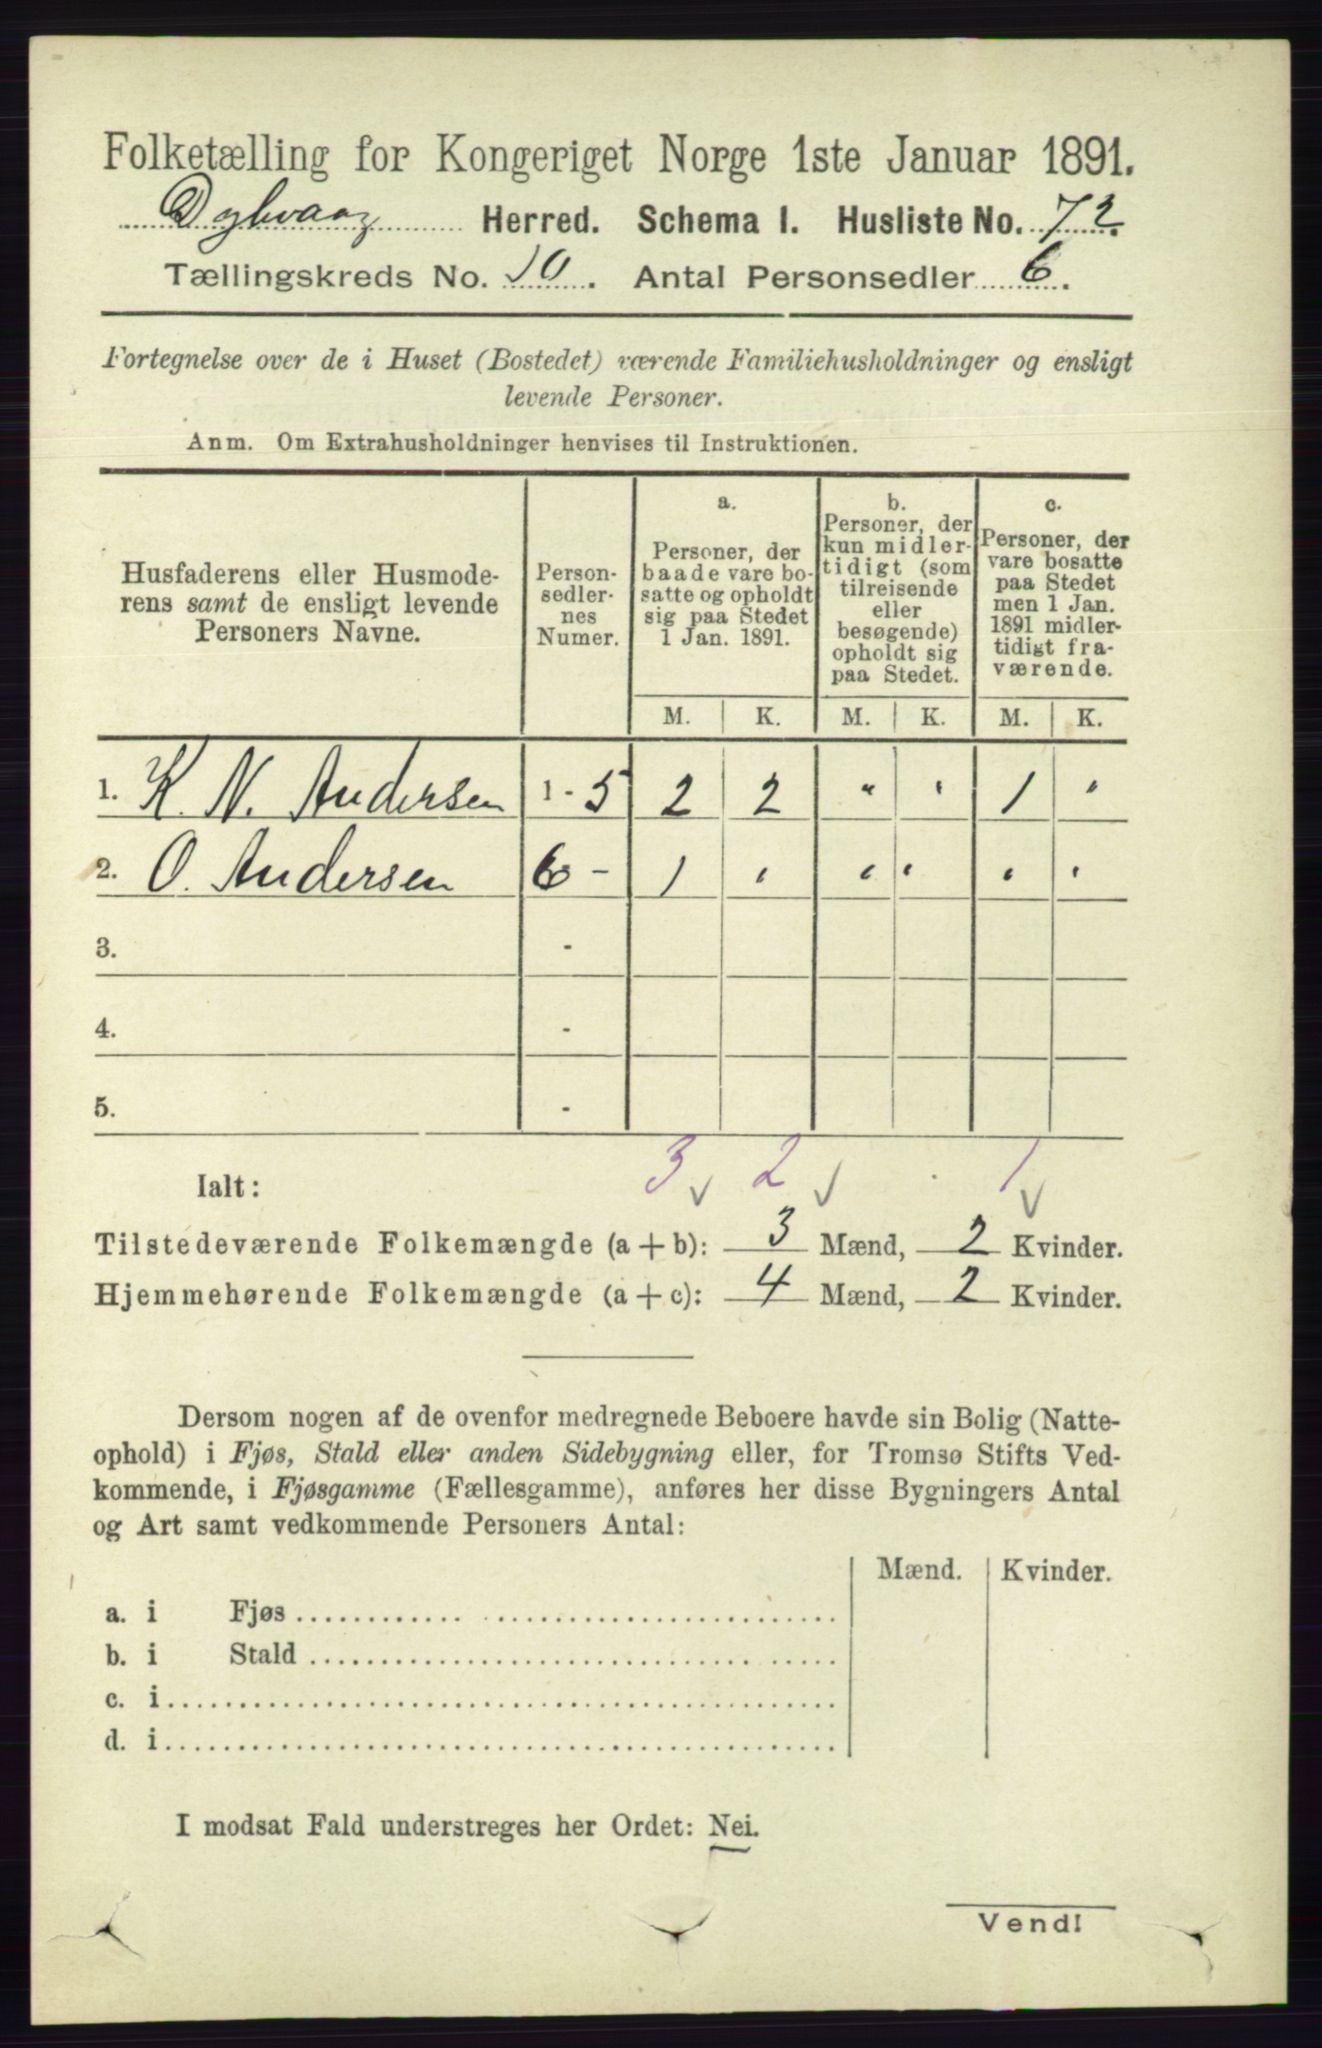 Folketælling for Kongeriget Norge 1ste Januar 1891.
Dybvaag Herred. Schema I. Husliste No. 72.
Tællingskreds No. 10. Antal Personsedler 6.
Fortegnelse over de i Huset (Bostedet) værende Familiehusholdninger og ensligt
levende Personer.
Anm. Om Extrahusholdninger henvises til Instruktionen.
Husfaderens eller Husmode-
rens samt de ensligt levende
Personers Navne.
Person-
sedler-
nes
Numer.
a.
Personer, der
baade vare bo-
satte og opholdt
sig paa Stedet
1 Jan. 1891.
b.
Personer, der
kun midler-
tidigt (som
tilreisende
eller
besøgende)
opholdt sig
paa Stedet.
c.
Personer, der
vare bosatte
paa Stedet
men 1 Jan.
1891 midler-
tidigt fra-
værende.
M. K. M. K. M. K.
1. K. N. Andersen 1 - 5 2 2 " " 1 "
2. O. Andersen 6 - 1 " " " " "
3. -
4. -
5. -
3 2 1
Ialt:
Tilstedeværende Folkemængde (a+b): 3 Mænd, 2 Kvinder.
Hjemmehørende Folkemængde (a+c): 4 Mænd, 2 Kvinder.
Dersom nogen af de ovenfor medregnede Beboere havde sin Bolig (Natte-
ophold) i Fjøs, Stald eller anden Sidebygning eller, for Tromsø Stifts Ved-
kommende, i Fjøsgamme (Fællesgamme), anføres her disse Bygningers Antal
og Art samt vedkommende Personers Antal:
Mænd. Kvinder.
a. i Fjøs
b. i Stald
c. i
d. i
I modsat Fald understreges her Ordet: Nei.
Vend!